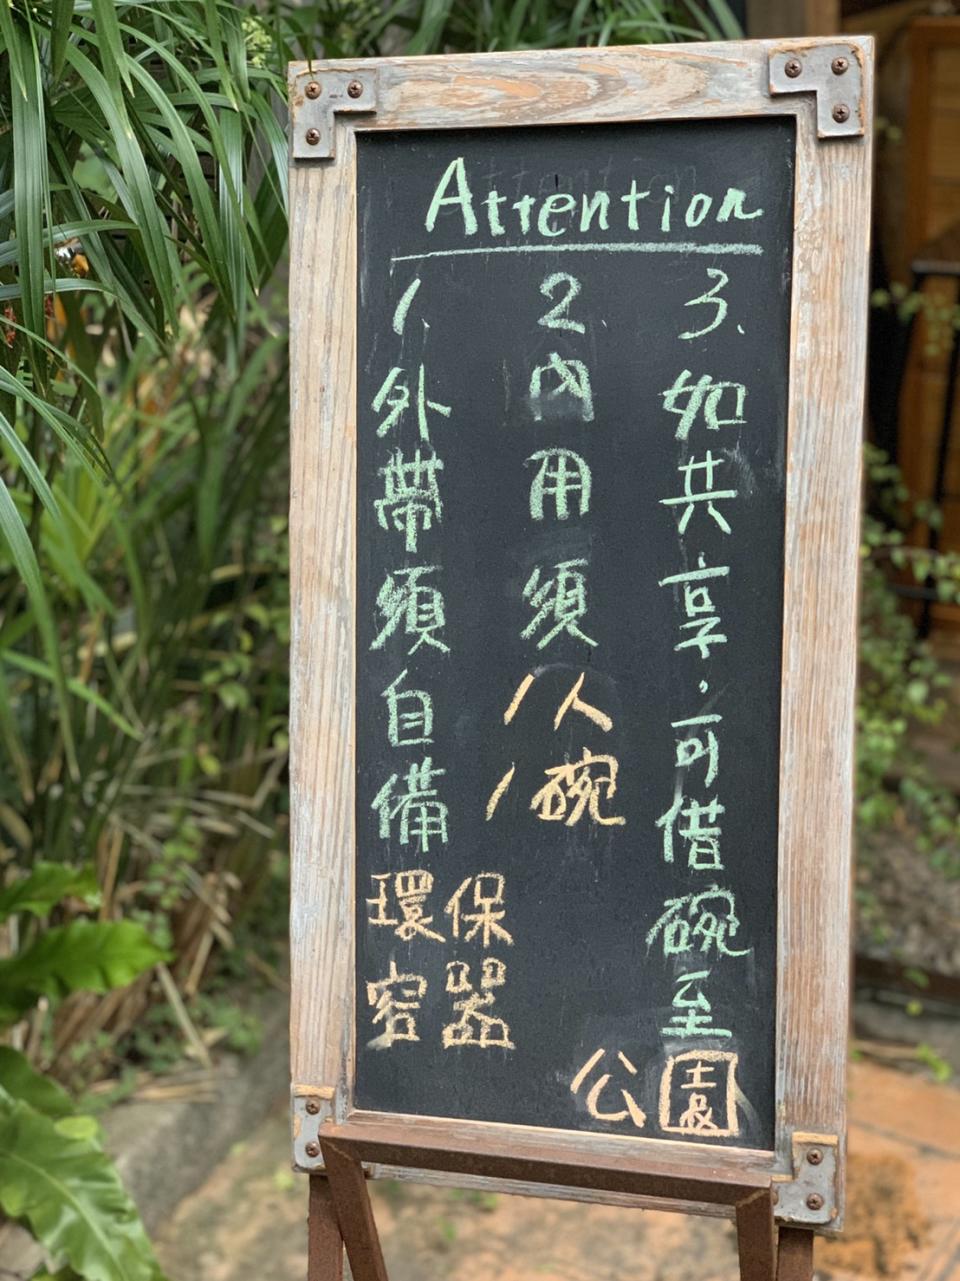 Attention
1. 外帶須自備
環保
容器
2. 內用須
1人
1碗
3. 如共享，可借碗至
公園